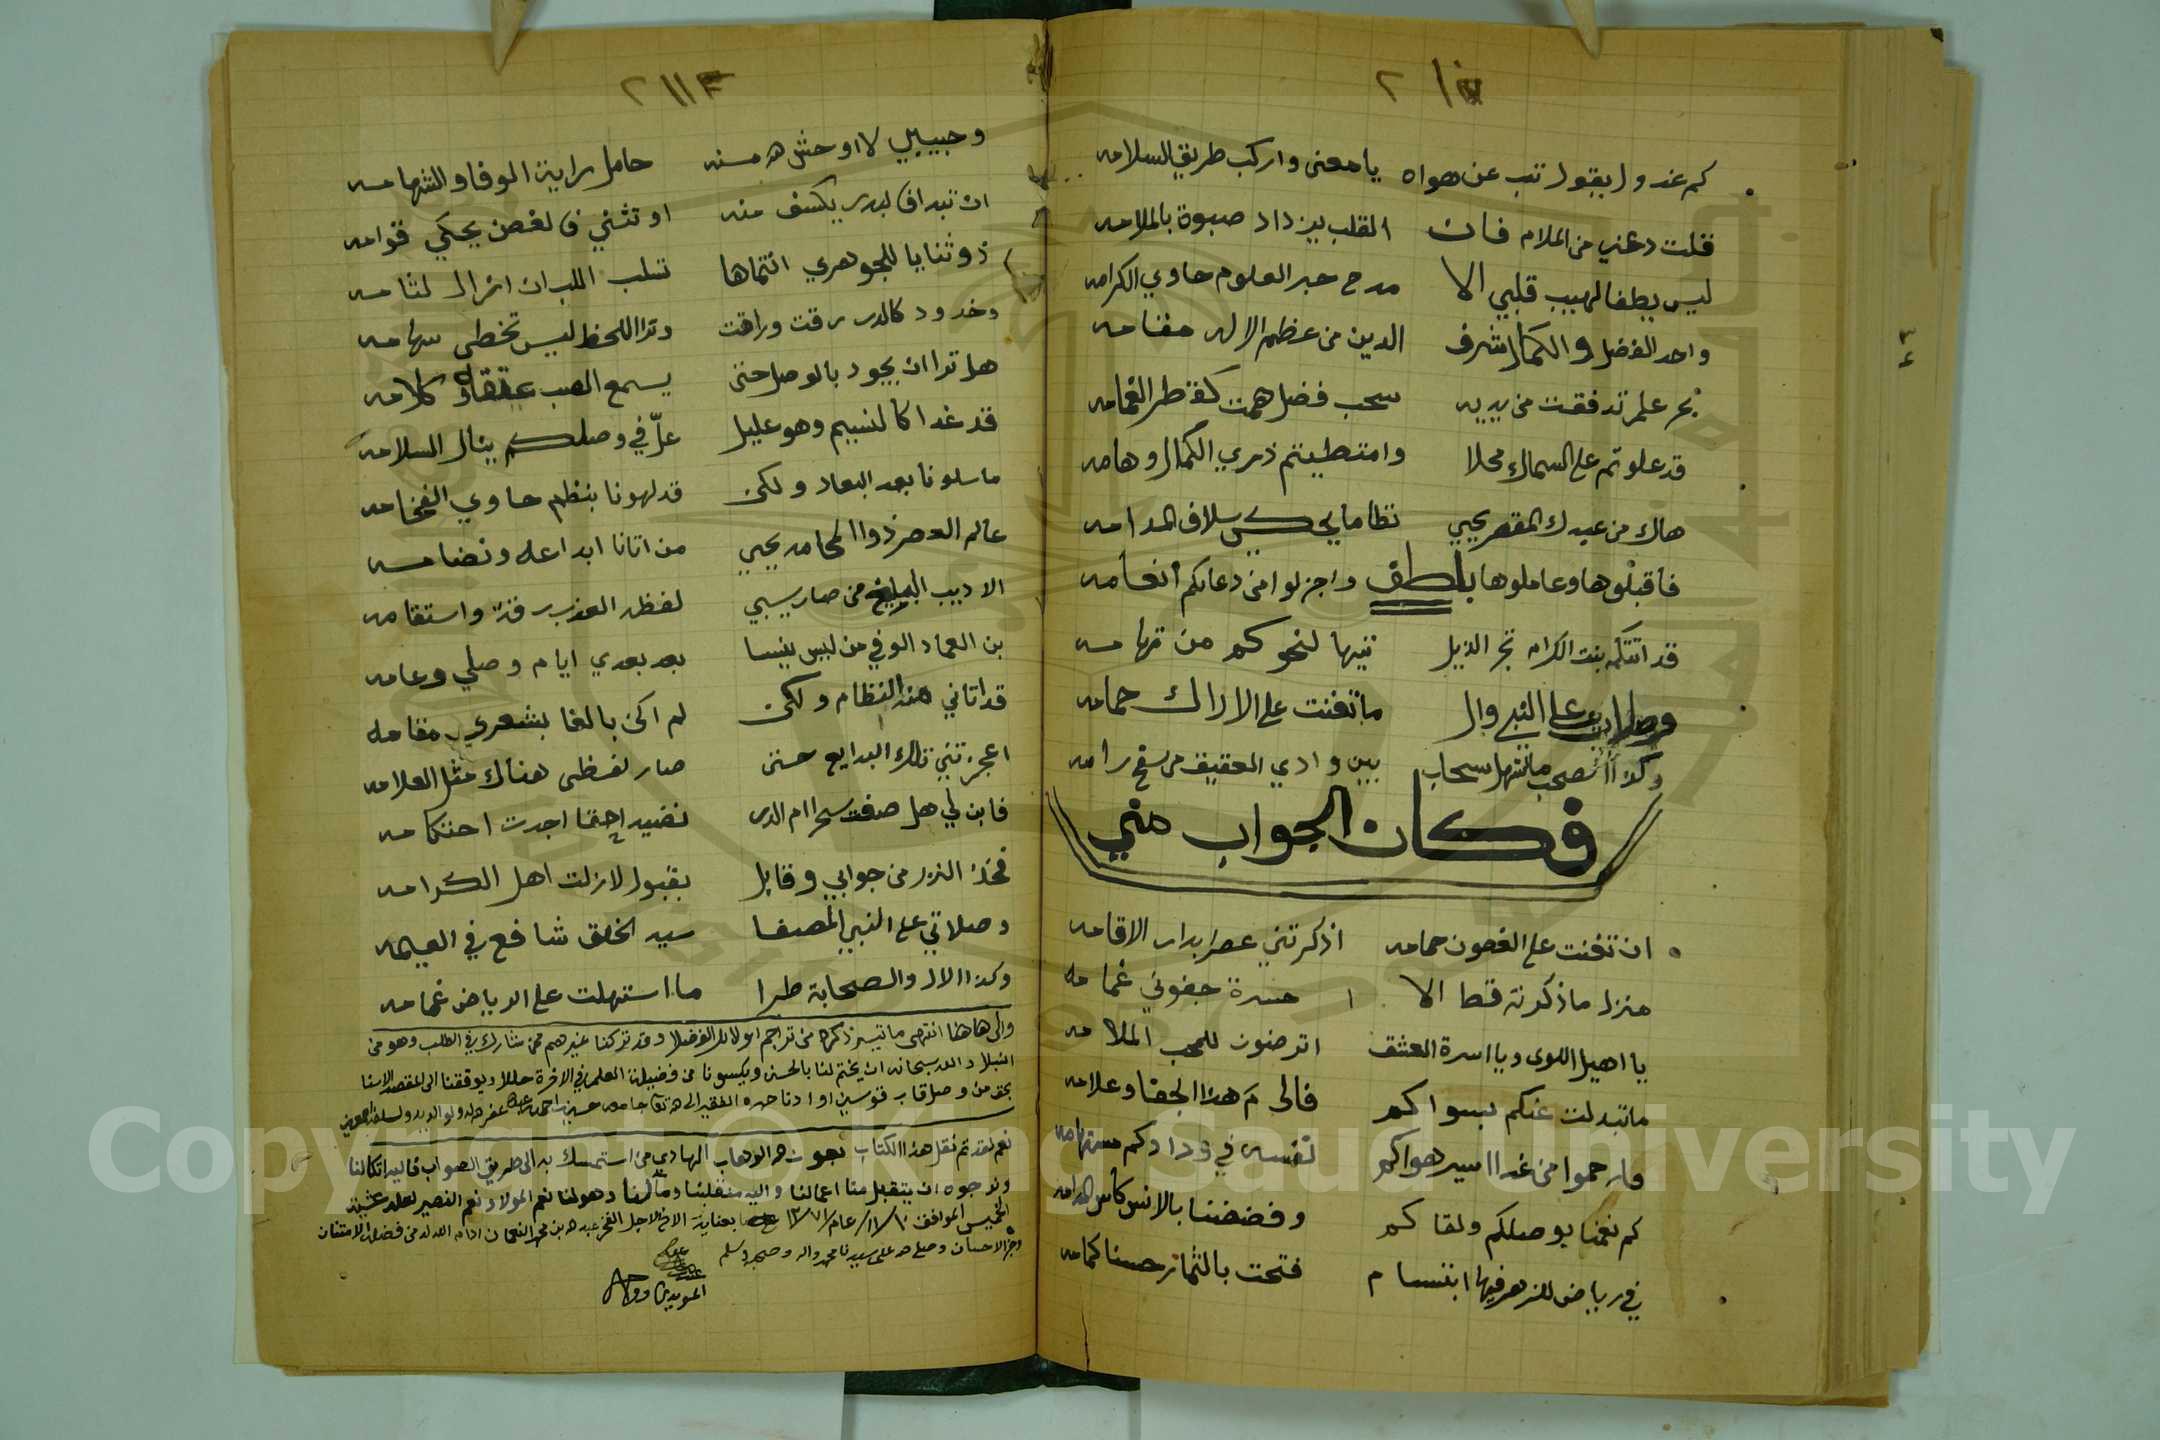 كم عذول يقول تب عن هواه يا معنى واركب طريق السلامه
قلت دعني من الملام فان القلب يزداد صبوة بالملامه
ليس يطفا لهيب قلبي الا مدح حبر العلوم حاوي الكرامه
واحد الفضل والكمال شرف الدين من عظم الاله مقامه
بحر علم تدفقت من يديه سحب فضل همت كقطر الغمامه
قد علوتم على السماك محلا وامتطيتم ذرى الكمال وهامه
هاك من عبدك المقصر يحيى نظاما يحكي سلاف المدامه
فاقبلوها وعاملوها بلطف واجزلوا من دعائكم انعامه
قد اتتكم بنت الكرام تجر الذيل تيها لنحوكم من تهامه
وصلاتي على النبي وال ما تغنت على الاراك حمامه
وكذا الصحب ما استهل سحاب بين وادي العقيق من سفح رامه
فكان الجواب مني
ان تغنت على الغصون حمامه اذكرتني عصرا بدار الاقامه
منزل ما ذكرته قط الا حسرة جفوني غمامه
يا اهيل اللوى ويا اسرة العشق اترضون للمحب الملامه
ما تبدلت عنكم بسواكم فالى م هذا الجفا وعلامه
فارحموا من غدا اسير هواكم نفسه في ودادكم مستهامه
كم نعمنا بوصلكم ولقاكم وفضضنا بالانس كاس المدامه
في رياض للزهر فيها ابتسام فتحت بالثمار حسنا كمامه
وحبيبي لا اوحش الله منه حامل راية الوفا والشهامه
ان تبدا فالبدر يكسف منه او تثني فالغصن يحكي قوامه
ذو ثنايا للجوهري انتماها تسلب اللب ان ازال لثامه
وخدود كالدر رقت وراقت وترا اللحظ ليس تخطي سهامه
هل ترا ان يجود بالوصل حتى يسمع الصب كلامه
قد غدا كالنسيم وهو عليل علّ في وصلكم ينال السلامه
ما سلونا بعد البعاد ولكن قد لهونا بنظم حاوي الفخامه
عالم العصر ذو المحامد يحيى من اتانا ابداعه ونضامه
الاديب البليغ من صار يسبي لفظه العذب رقة واستقامه
بن العماد الوفي من ليس ينسا بعد بعدي ايام وصلي وعامه
قد اتاني هذا النظام ولكن لم اكن بالغا بشعري مقامه
اعجزتني تلك البدايع حتى صار لفظي هناك مثل العلامه
فابن لي هل صغت سحرا ام الدر نضيد اجدت احتكامه
فخذ النزر من جوابي وقابل بقبول لا زلت اهل الكرامه
وصلاتي على النبي المصفا سيد الخلق شافع في القيامه
وكذا الال والصحابة طرا ما استهلت على الرياض غمامه
والى هاهنا انتهى ما تيسر ذكره من تراجم اولائك الفضلا وقد تركنا غيرهم ممن شارك في الطلب وهو من
النبلا والله سبحانه ان يختم لنا بالحسنى ويكسونا من فضيلة العلم في الاخرة حللا ويوفقنا الى المقصد الاسنا
بحق من وصل قاب قوسين او ادنا حرره الفقير الى الله تعالى جامعه حسين بن احمد غفر الله له ولوالديه
نعم لقد تم نقل هذا الكتاب بعون الله الوهاب الهادي من استمسك به الى طريق الصواب فاليه اتكالنا
ونرجوه ان يتقبل منا اعمالنا واليه منقلبنا ومآلنا وهو لنا نعم المولا ونعم النصير
الخميس الموافق ١٠/١١/ عام ١٣٧١ بعناية الاخ الاجل الفخر عبدالله بن محمد النعمان ادامه الله له من فضله الامتنان
وجزا الاحسان وصلى الله على سيدنا محمد واله وصحبه وسلم